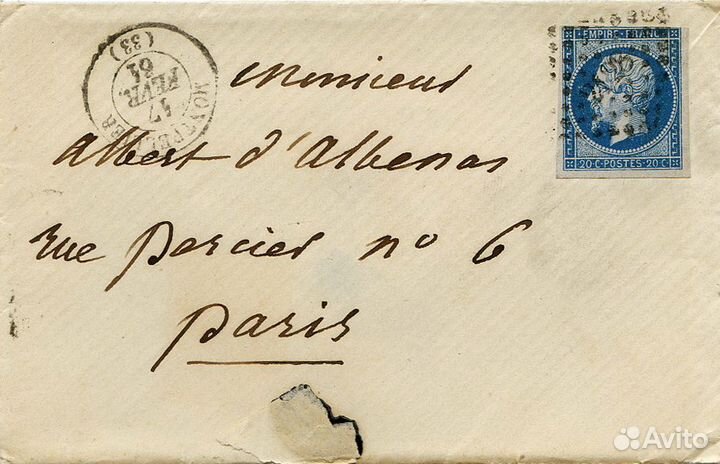 MONTPELLIER
17
FEVR.
61
(33)
EMPIRE-FRANC
20-C-POSTES-20-C
Monsieur
Albert d'Albenas
rue Percier n° 6
Paris
Avito